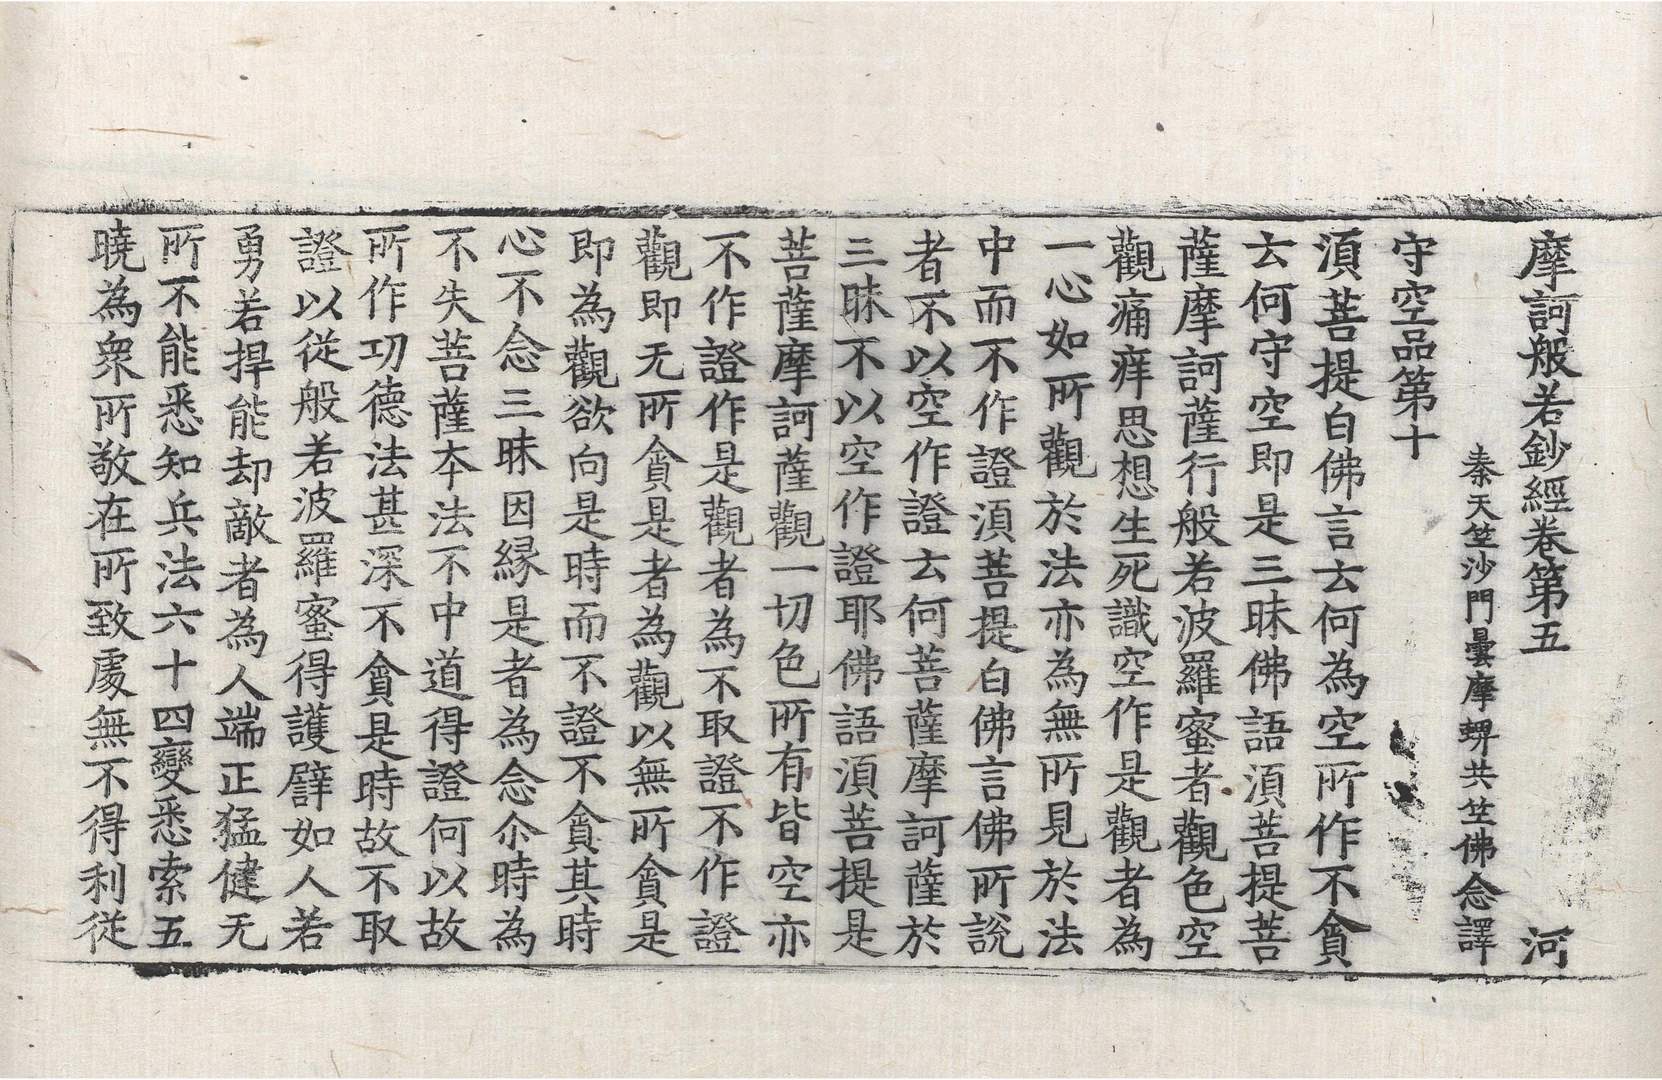 摩訶般若鈔經卷第五 河
秦天竺沙門曇摩蜱共竺佛念譯
守空品第十
須菩提白佛言云何為空所作不貪
云何守空即是三昧佛語須菩提菩
薩摩訶薩行般若波羅蜜者觀色空
觀痛痒思想生死識空作是觀者為
一心如所觀於法亦為無所見於法
中而不作證須菩提白佛言佛所說
者不以空作證云何菩薩摩訶薩於
三昧不以空作證耶佛語須菩提是
菩薩摩訶薩觀一切色所有皆空亦
不作證作是觀者為不取證不作證
觀即无所貪是者為觀以無所貪是
即為觀欲向是時而不證不貪其時
心不念三昧因緣是者為念尒時為
不失菩薩本法不中道得證何以故
所作功德法甚深不貪是時故不取
證以從般若波羅蜜得護譬如人若
勇若捍能却敵者為人端正猛健无
所不能悉知兵法六十四變悉索五
曉為衆所敬在所致處無不得利從